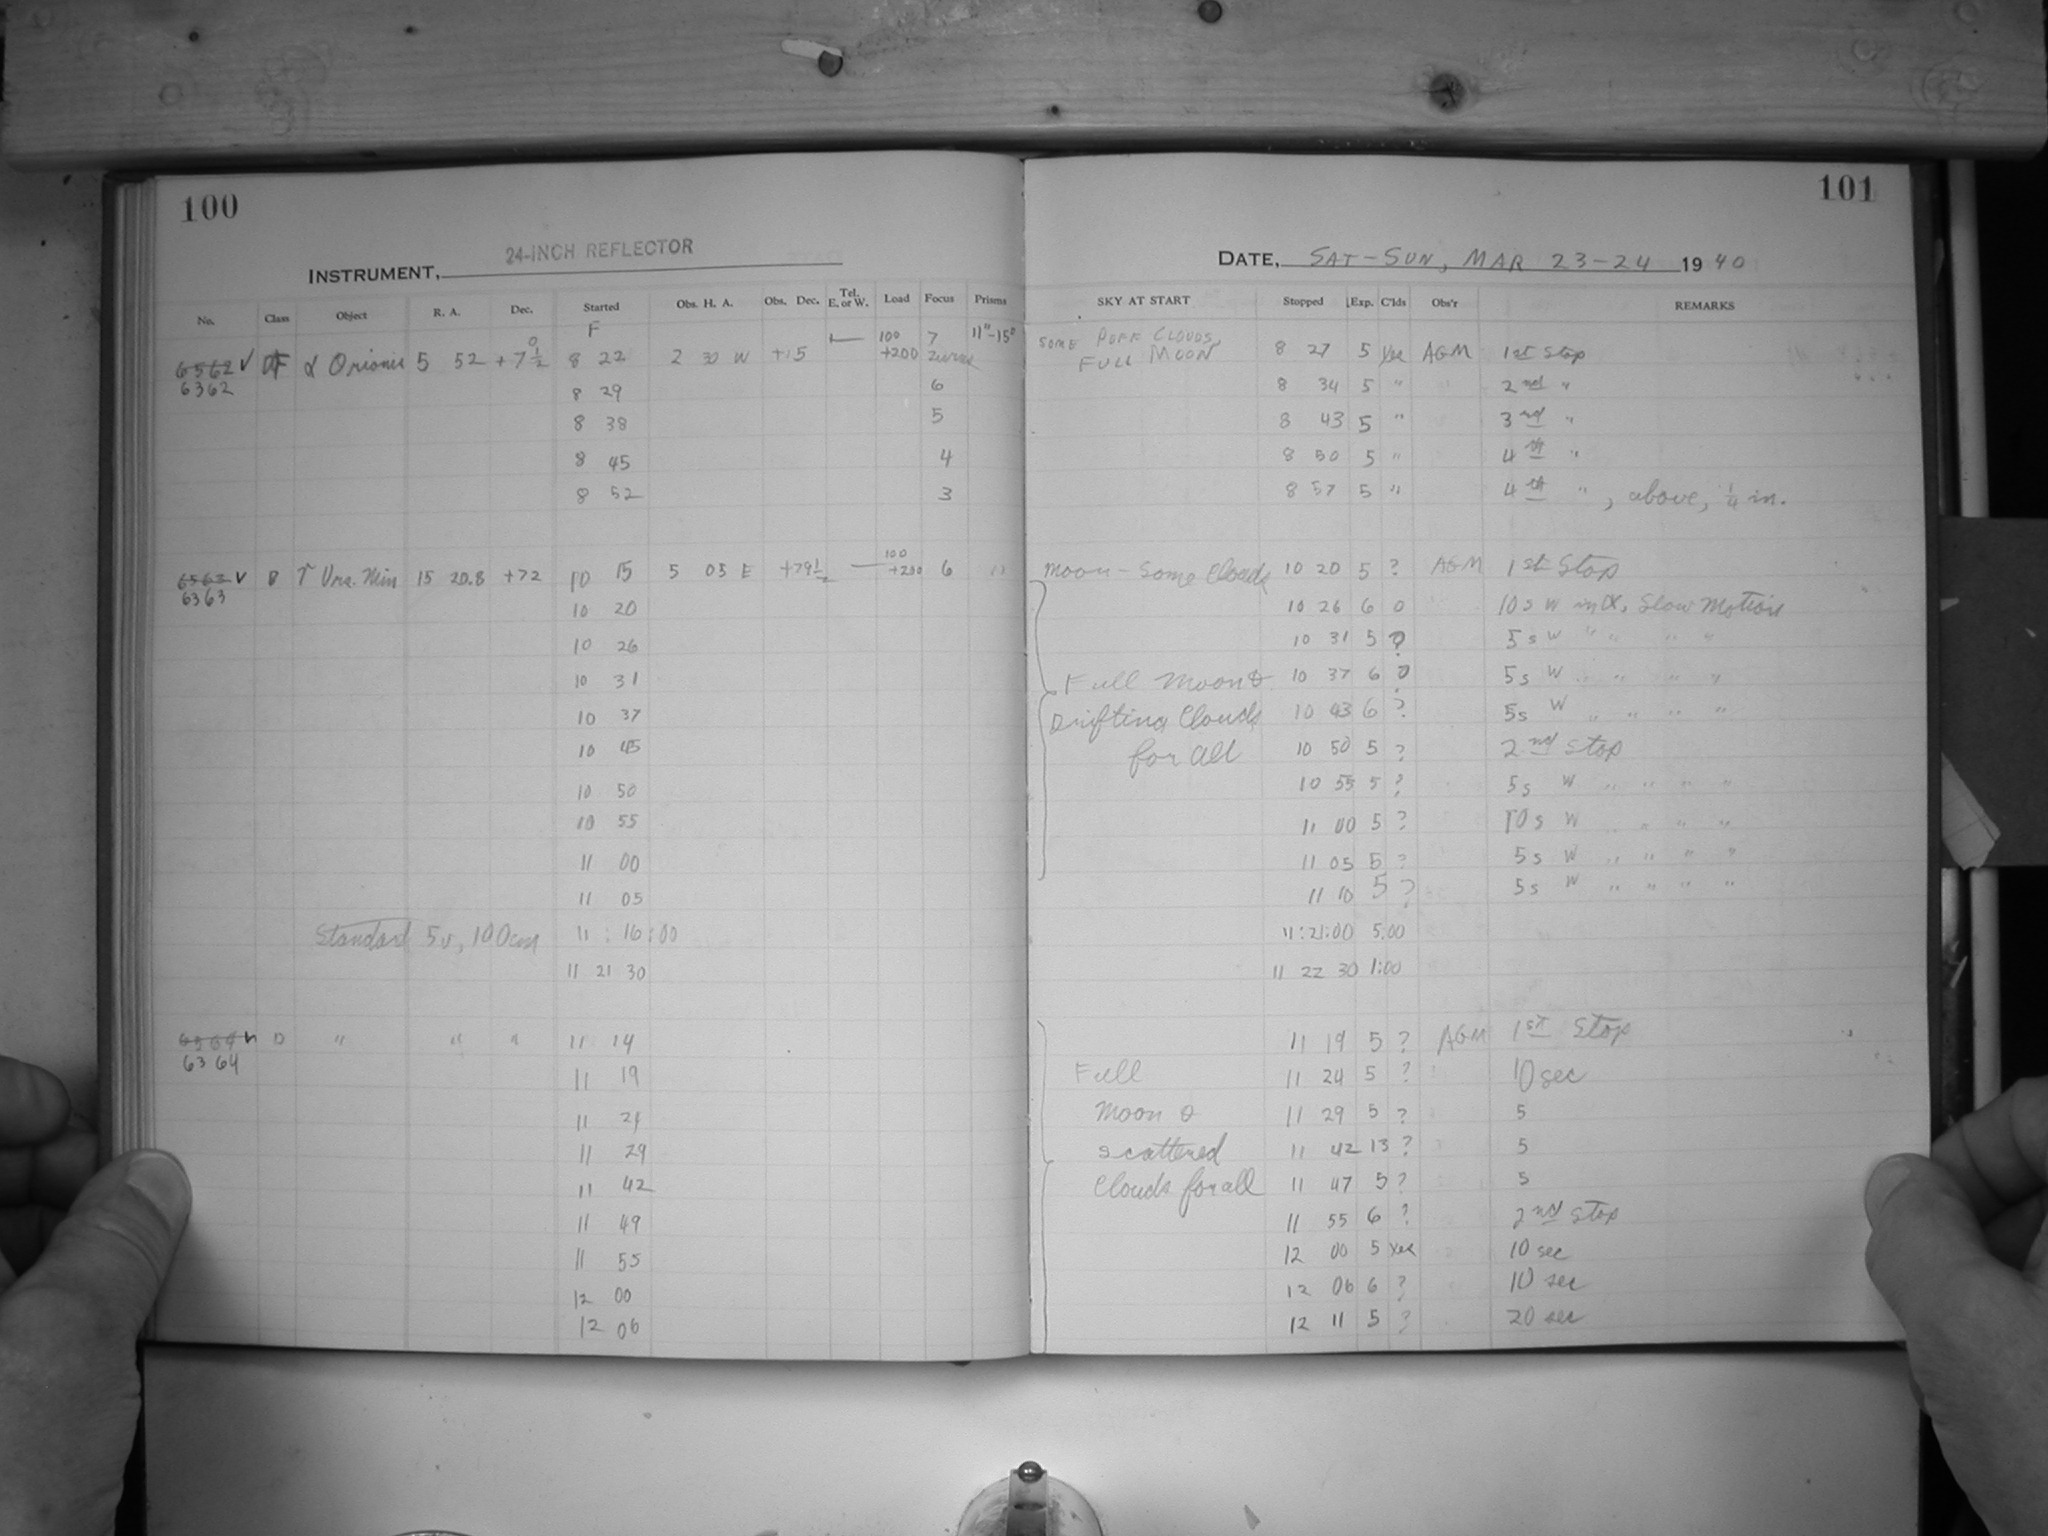 100
24-INCH REFLECTOR
INSTRUMENT,
No. Class Object R. A. Dec. Started Obs. H. A. Obs. Dec. Tel. E. or W. Load Focus Prisms
F
6562 √ α Orionis 5 52 +7 1/2° 8 22 2 30 W +15 — 100 +200 7 11"-15°
6362
8 29 6
8 38 5
8 45 4
8 52 3
6563 √ D γ Urs. Min 15 20.8 +72 10 15 5 05 E +79 1/2 — 100 +200 6 "
6363
10 20
10 26
10 31
10 37
10 45
10 50
10 55
11 00
11 05
Standard 5v, 100cm 11:16:00
11 21 30
6564 √ D " " " 11 14
6364
11 19
11 24
11 29
11 42
11 49
11 55
12 00
12 06
101
DATE, SAT-SUN, MAR 23-24 1940
SKY AT START Stopped Exp. C'lds Obs'r REMARKS
SOME PUFF CLOUDS,
FULL MOON 8 27 5 Yes AGM 1st Stop
8 34 5 " 2nd "
8 43 5 " 3rd "
8 50 5 " 4th "
8 57 5 " 4th " , above, 1/4 in.
Moon - Some Clouds 10 20 5 ? AGM 1st Stop
10 26 6 0 10s W in α, Slow Motion
10 31 5 ? 5s W " " " "
Full Moon & 10 37 6 0 5s W " " " "
Drifting Clouds 10 43 6 ? 5s W " " " "
for all 10 50 5 ? 2nd Stop
10 55 5 ? 5s W " " " "
11 00 5 ? 10s W " " " "
11 05 5 ? 5s W " " " "
11 10 5 ? 5s W " " " "
11:21:00 5:00
11 22 30 1:00
11 19 5 ? AGM 1st Stop
Full 11 24 5 ? 10 sec
Moon & 11 29 5 ? 5
scattered 11 42 13 ? 5
Clouds for all 11 47 5 ? 5
11 55 6 ? 2nd Stop
12 00 5 Yes 10 sec
12 06 6 ? 10 sec
12 11 5 ? 20 sec